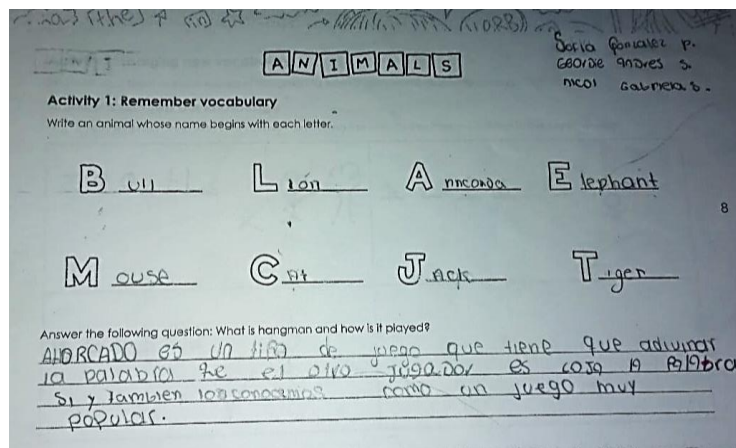 Sofia Gonzalez P.
ANIMALS
George Andres S.
Nicol Gabriela S.
Activity 1: Remember vocabulary
Write an animal whose name begins with each letter.
Bull Lión Annconda Elephant
8
Mouse Cat Jack Tiger
Answer the following question: What is hangman and how is it played?
AHORCADO es un tipo de juego que tiene que adivinar
la palabra qe el otro jugador es coja la palabra
Si y tambien como un juego muy
popular.